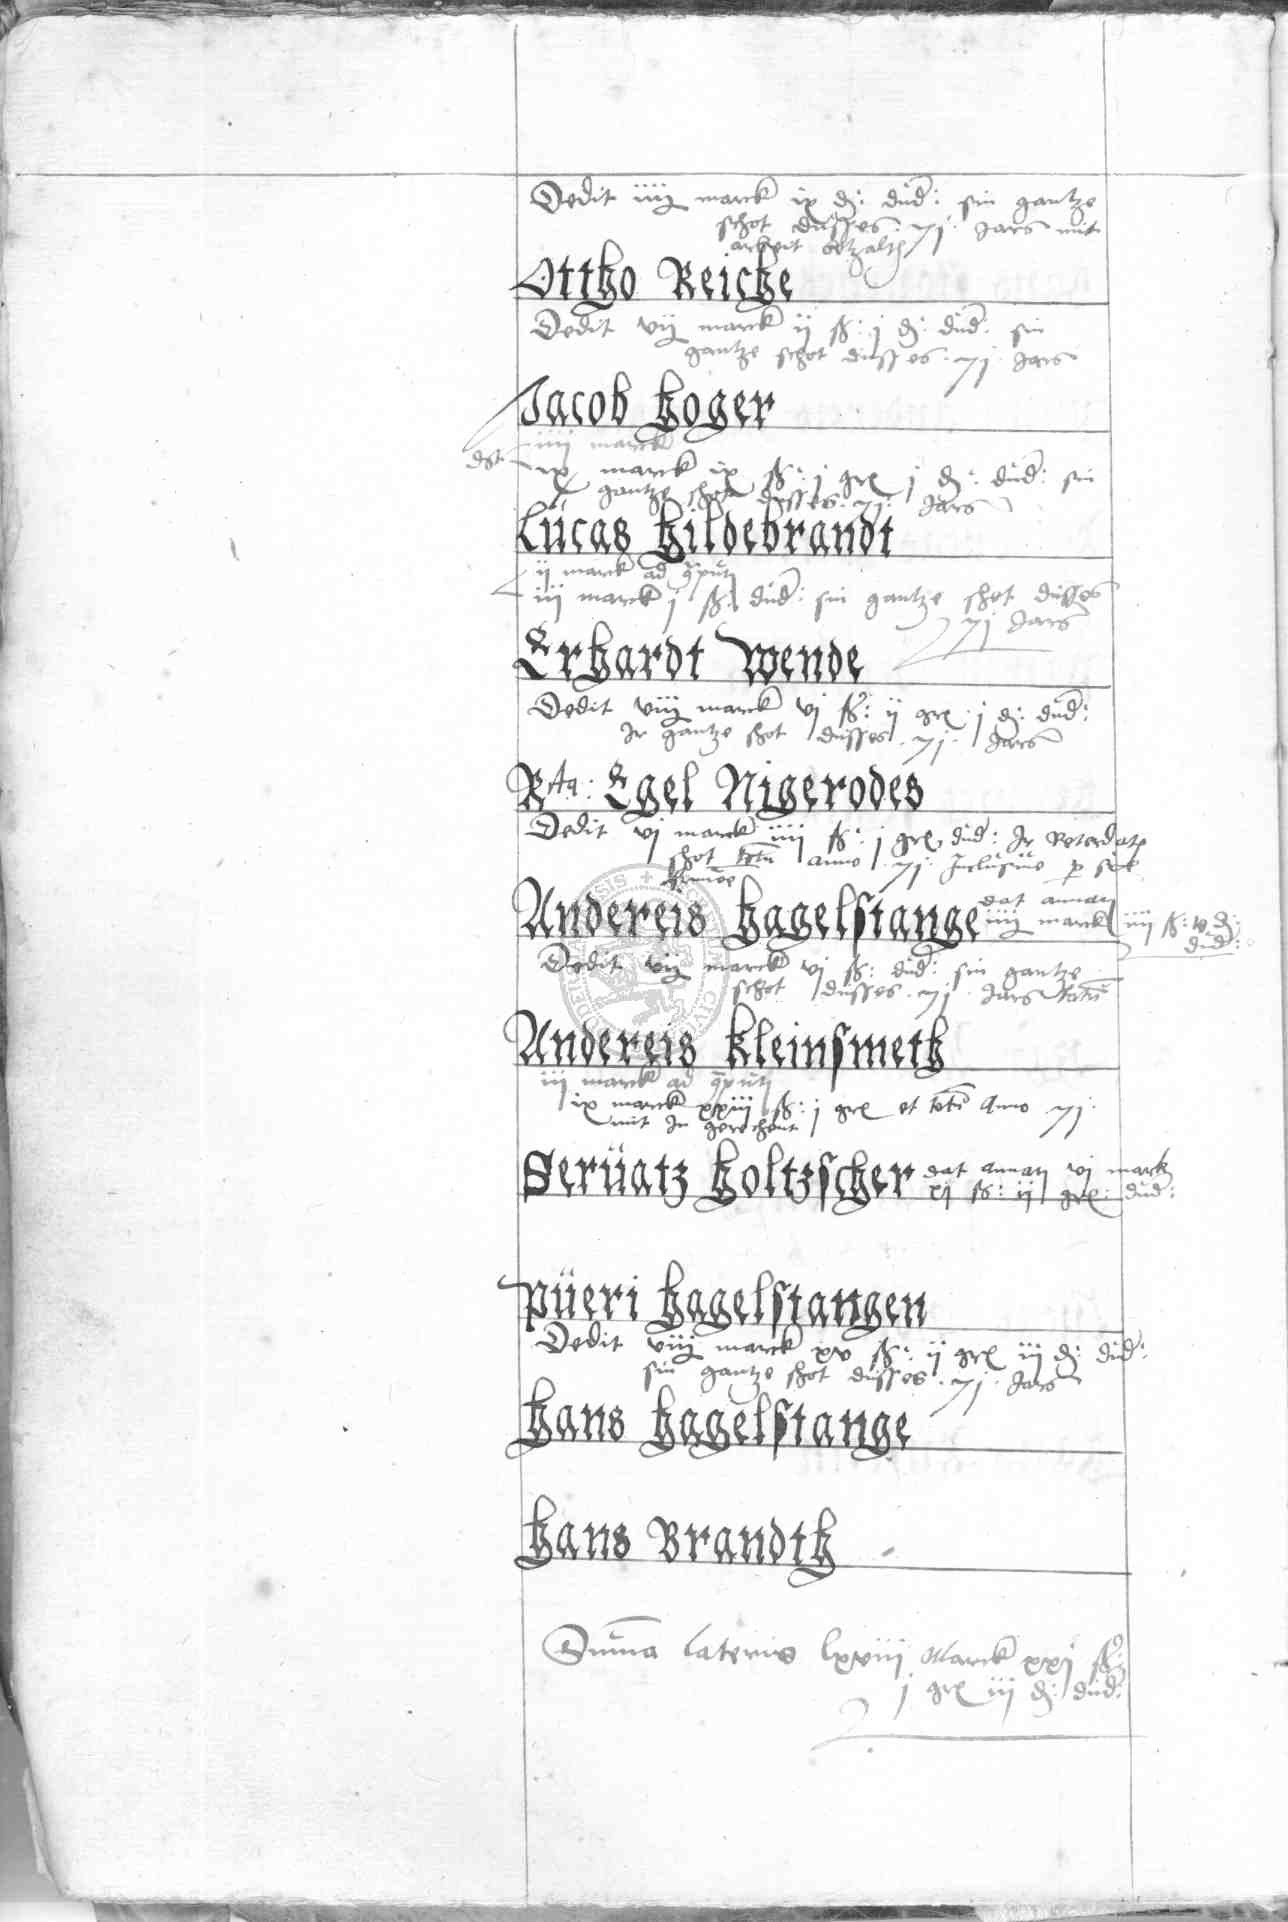 Dedit iiij marck ix ₰: dud: sin gantze
schot dusses .71. Jars mit
arbeit betzalt
Ottho Reiche
Dedit vij marck ij ß: j ₰: dud: sin
gantze schot dusses .71. Jars
Jacob Hoger
iiij marck
dt. ix marck ix ß: j gr j ₰: dud: sin
gantze schot dusses .71. Jars
Lücas Hildebrandt
ij marck ad
iiij marck j ß: dud: sin gantze schot dusses
71 Jars
Erhardt Wende
Dedit viij marck vj ß: ij gr j ₰: dud:
Jr gantze schot dusses .71. Jars
Rta: Egel Nigerodes
Dedit vj marck iiij ß: j gr dud: Jr Retardat
schot anno .71. Inclusive
Andereis Hagelstange dat
iiij marck iiij ß: v ₰:
dud:
Dedit vij marck vj ß: dud: sin gantze
schot dusses .71. Jars
Andereis Kleinsmeth
iij marck ad
ix marck xxiij ß: j gr et Anno 71.
mit In gerechent
Serüatz Holtzscher dat vj marck
xj ß: ij gr: dud:
Püeri Hagelstangen
Dedit viij marck xv ß: ij gr iij ₰: dud:
sin gantze schot dusses .71. Jars
Hans Hagelstange
Hans Brandth
Suma lateris lxviij Marck xxj ß:
j gr iij ₰: dud: